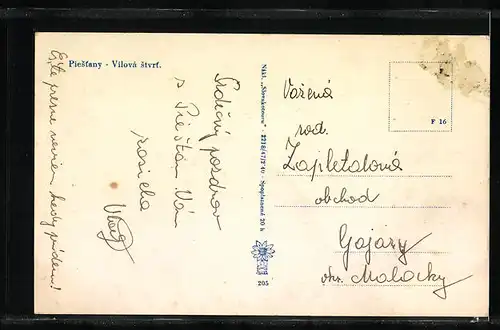 Piešťany - Vilová štvrť.
Ešte presne neviem, kedy prídem!
Srdečný pozdrav
z Piešťan Vám
zasiela
Nákl. „Slovakotouru" - 2218/47/F40 - Spoplatnené 20 h
205
F 16
Vážená
rod.
Zapletalová
obchod
Gajary
okr. Malacky